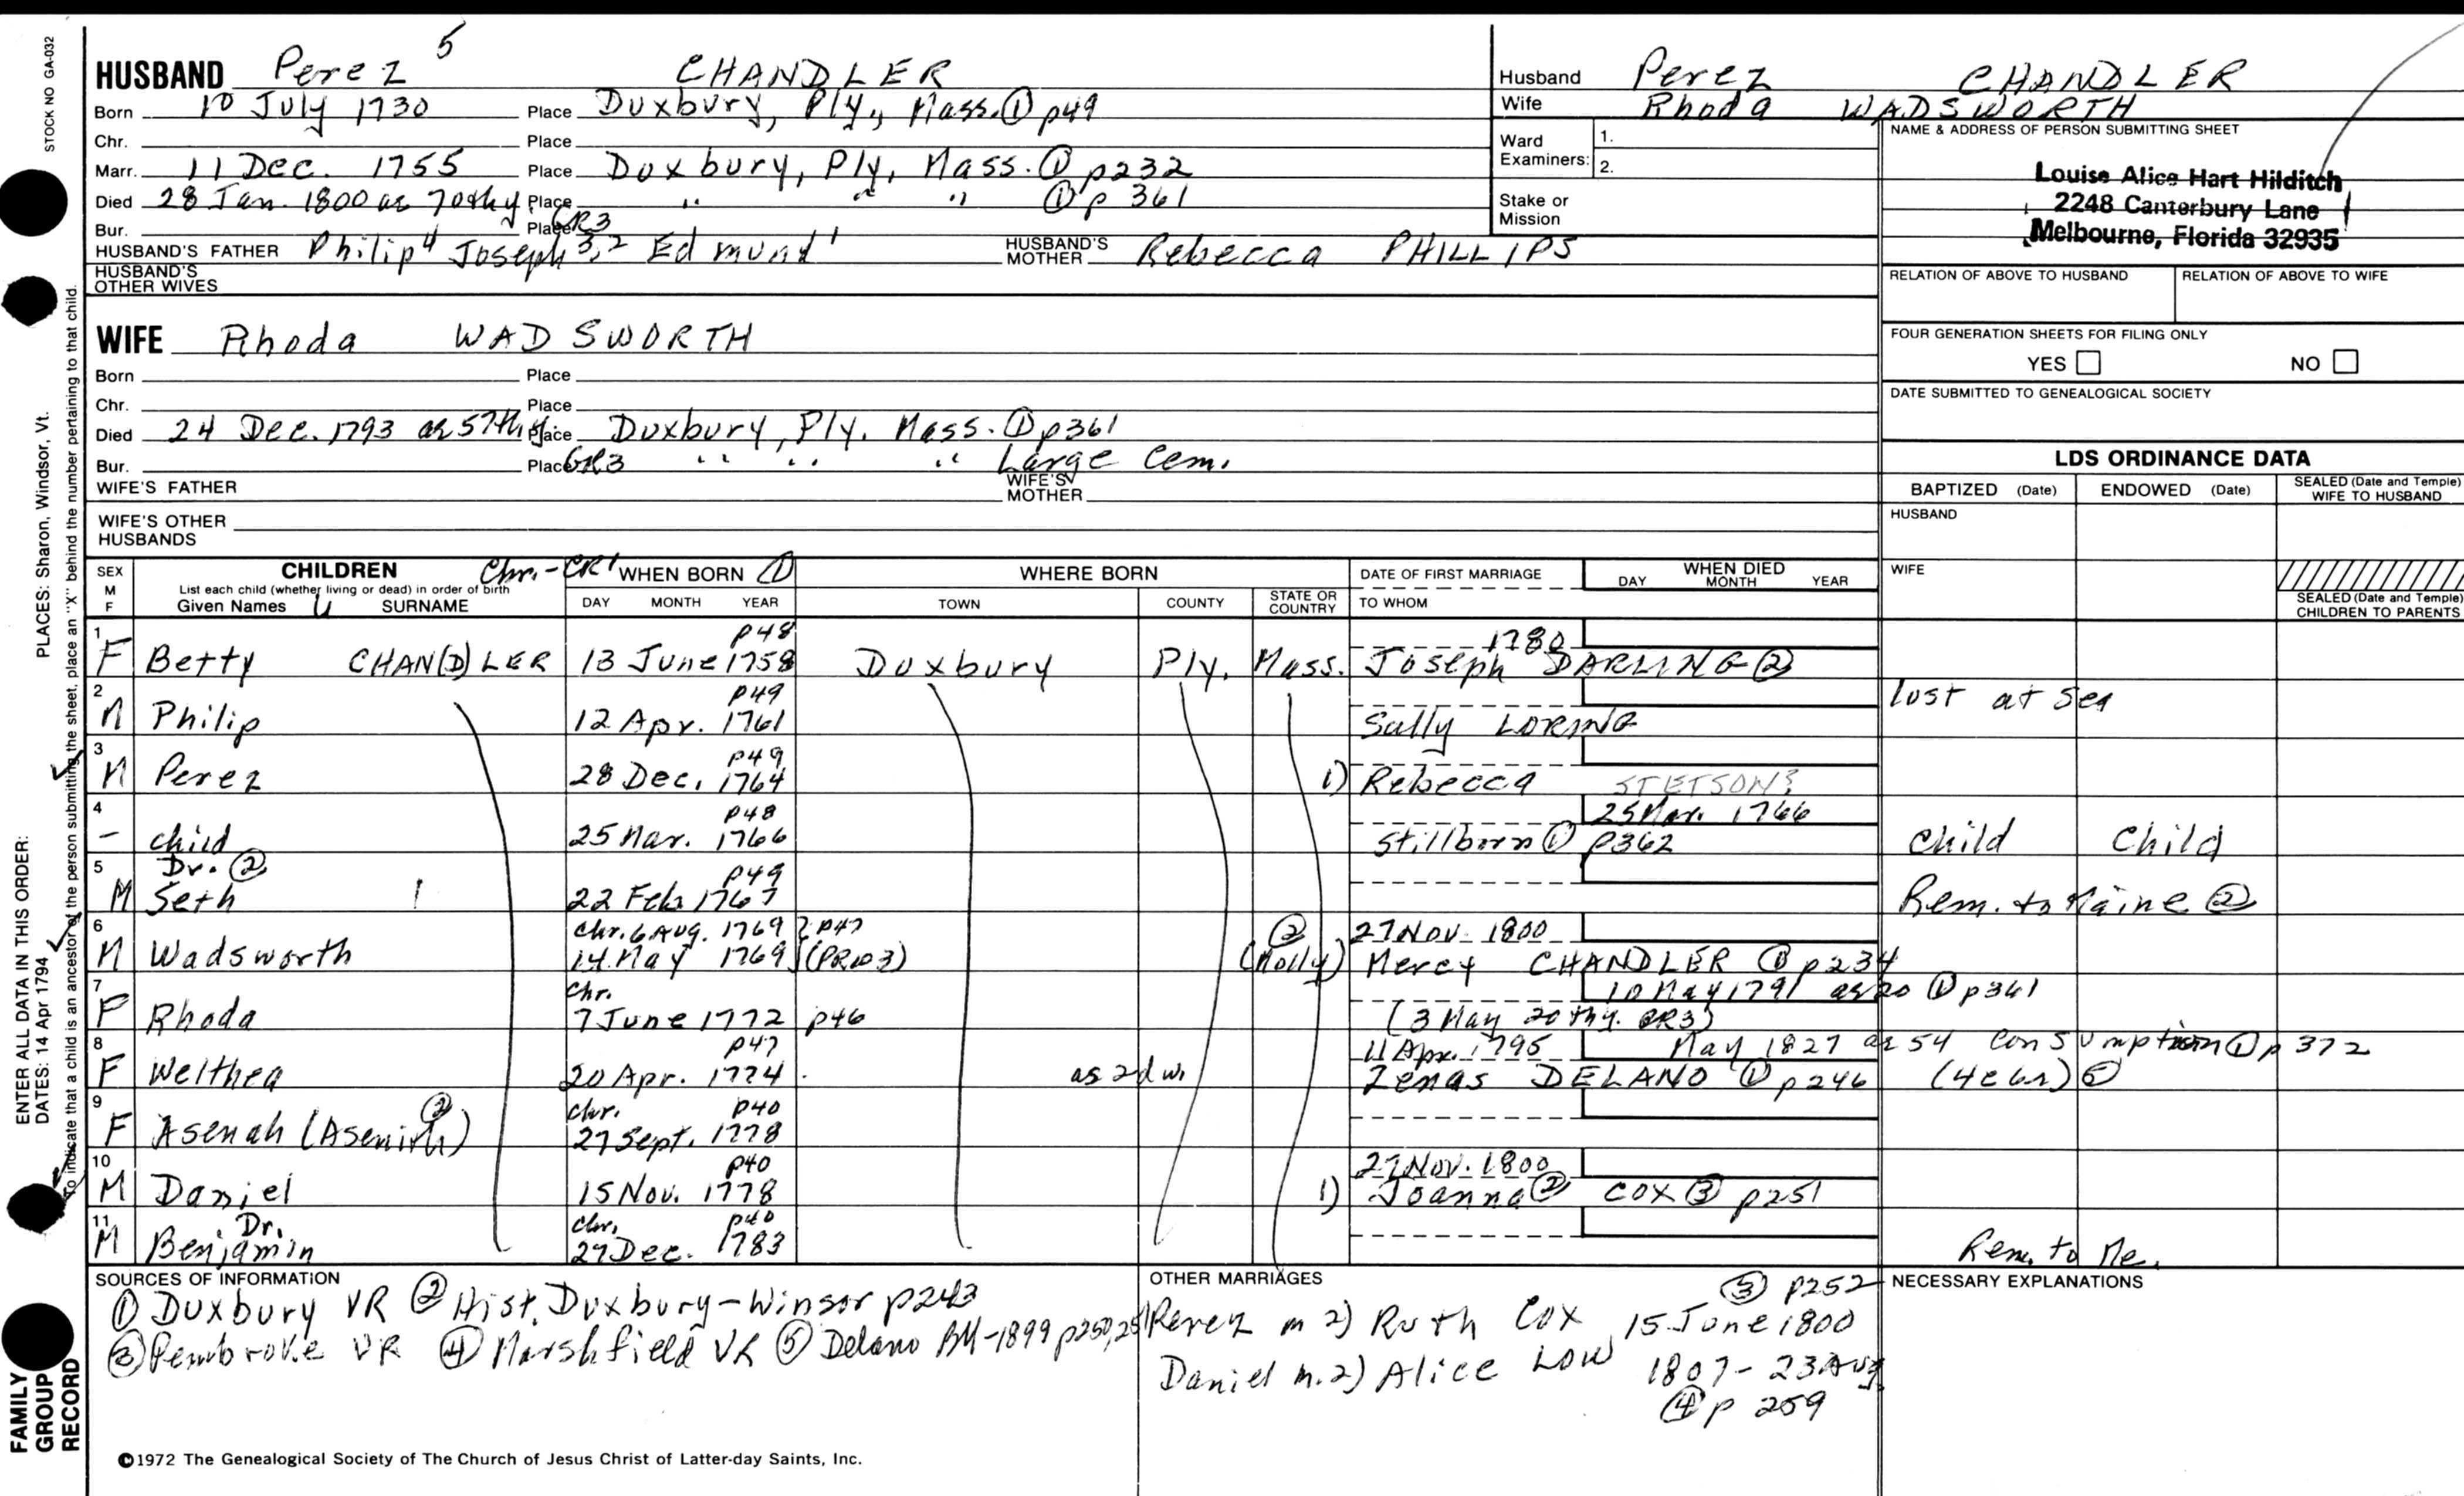 STOCK NO GA-032
HUSBAND Perez 5 CHANDLER
Born 10 July 1730 Place Duxbury, Ply., Mass. ① p49
Chr. Place
Marr. 11 Dec. 1755 Place Duxbury, Ply, Mass. ① p232
Died 28 Jan. 1800 ae 70thy Place " " " ① p 361
Bur. Place GR3
HUSBAND'S FATHER Philip4 Joseph3,2 Edmund1 HUSBAND'S MOTHER Rebecca PHILLIPS
HUSBAND'S OTHER WIVES
WIFE Rhoda WADSWORTH
Born Place
Chr. Place
Died 24 Dec. 1793 ae 57thy Place Duxbury, Ply. Mass. ① p361
Bur. Place GR3 " " " Large Cem.
WIFE'S FATHER WIFE'S MOTHER
WIFE'S OTHER HUSBANDS
Husband Perez CHANDLER
Wife Rhoda WADSWORTH
Ward Examiners: 1.
2.
Stake or Mission
NAME & ADDRESS OF PERSON SUBMITTING SHEET
Louise Alice Hart Hilditch
2248 Canterbury Lane
Melbourne, Florida 32935
RELATION OF ABOVE TO HUSBAND RELATION OF ABOVE TO WIFE
FOUR GENERATION SHEETS FOR FILING ONLY
YES NO
DATE SUBMITTED TO GENEALOGICAL SOCIETY
LDS ORDINANCE DATA
BAPTIZED (Date) ENDOWED (Date) SEALED (Date and Temple) WIFE TO HUSBAND
HUSBAND
WIFE
SEALED (Date and Temple) CHILDREN TO PARENTS
SEX M F CHILDREN Chr.-CR1 WHEN BORN ① WHERE BORN DATE OF FIRST MARRIAGE WHEN DIED
List each child (whether living or dead) in order of birth
Given Names SURNAME DAY MONTH YEAR TOWN COUNTY STATE OR COUNTRY TO WHOM DAY MONTH YEAR
1 p48 1780
F Betty CHAN(D)LER 13 June 1758 Duxbury Ply. Mass. Joseph DARLING ②
2 p49
M Philip 12 Apr. 1761 Sally LORING lost at sea
3 p49
M Perez 28 Dec. 1764 1) Rebecca STETSON?
4 p48 25 Mar. 1766
– child 25 Mar. 1766 stillborn ① p362 Child Child
5 Dr. ② p49
M Seth 22 Feb 1767 Rem. to Maine ②
6 chr. 6 AUG. 1769 } p47 ② 27 NOV. 1800
M Wadsworth 14 May 1769 (PR103) (Molly) Mercy CHANDLER ① p234
7 Chr. 10 May 1791 ae 20 ① p361
F Rhoda 7 June 1772 p46 (3 May 20thy. GR3)
8 p47 11 Apr. 1795 May 1827 ae 54 consumption ① p 372
F Welthea 20 Apr. 1774 as 2d w. Zenas DELANO ① p246 (4 ch) ⑤
9 ② chr. p40
F Asenah (Asenith) 27 Sept. 1778
10 p40 27 Nov. 1800
M Daniel 15 Nov. 1778 1) Joanna ② COX ③ p251
11 Dr. chr. p40
M Benjamin 27 Dec. 1783 Rem. to Me.
SOURCES OF INFORMATION
① Duxbury VR ② Hist. Duxbury-Winsor p243
③ Pembroke VR ④ Marshfield VR ⑤ Delano BM-1899 p250,251
OTHER MARRIAGES
③ p252
Perez m 2) Ruth COX 15 June 1800
Daniel m. 2) Alice LOW 1807 - 23 Aug
④ p 259
NECESSARY EXPLANATIONS
©1972 The Genealogical Society of The Church of Jesus Christ of Latter-day Saints, Inc.
PLACES: Sharon, Windsor, Vt.
To indicate that a child is an ancestor of the person submitting the sheet, place an "X" behind the number pertaining to that child.
ENTER ALL DATA IN THIS ORDER:
DATES: 14 Apr 1794
FAMILY GROUP RECORD